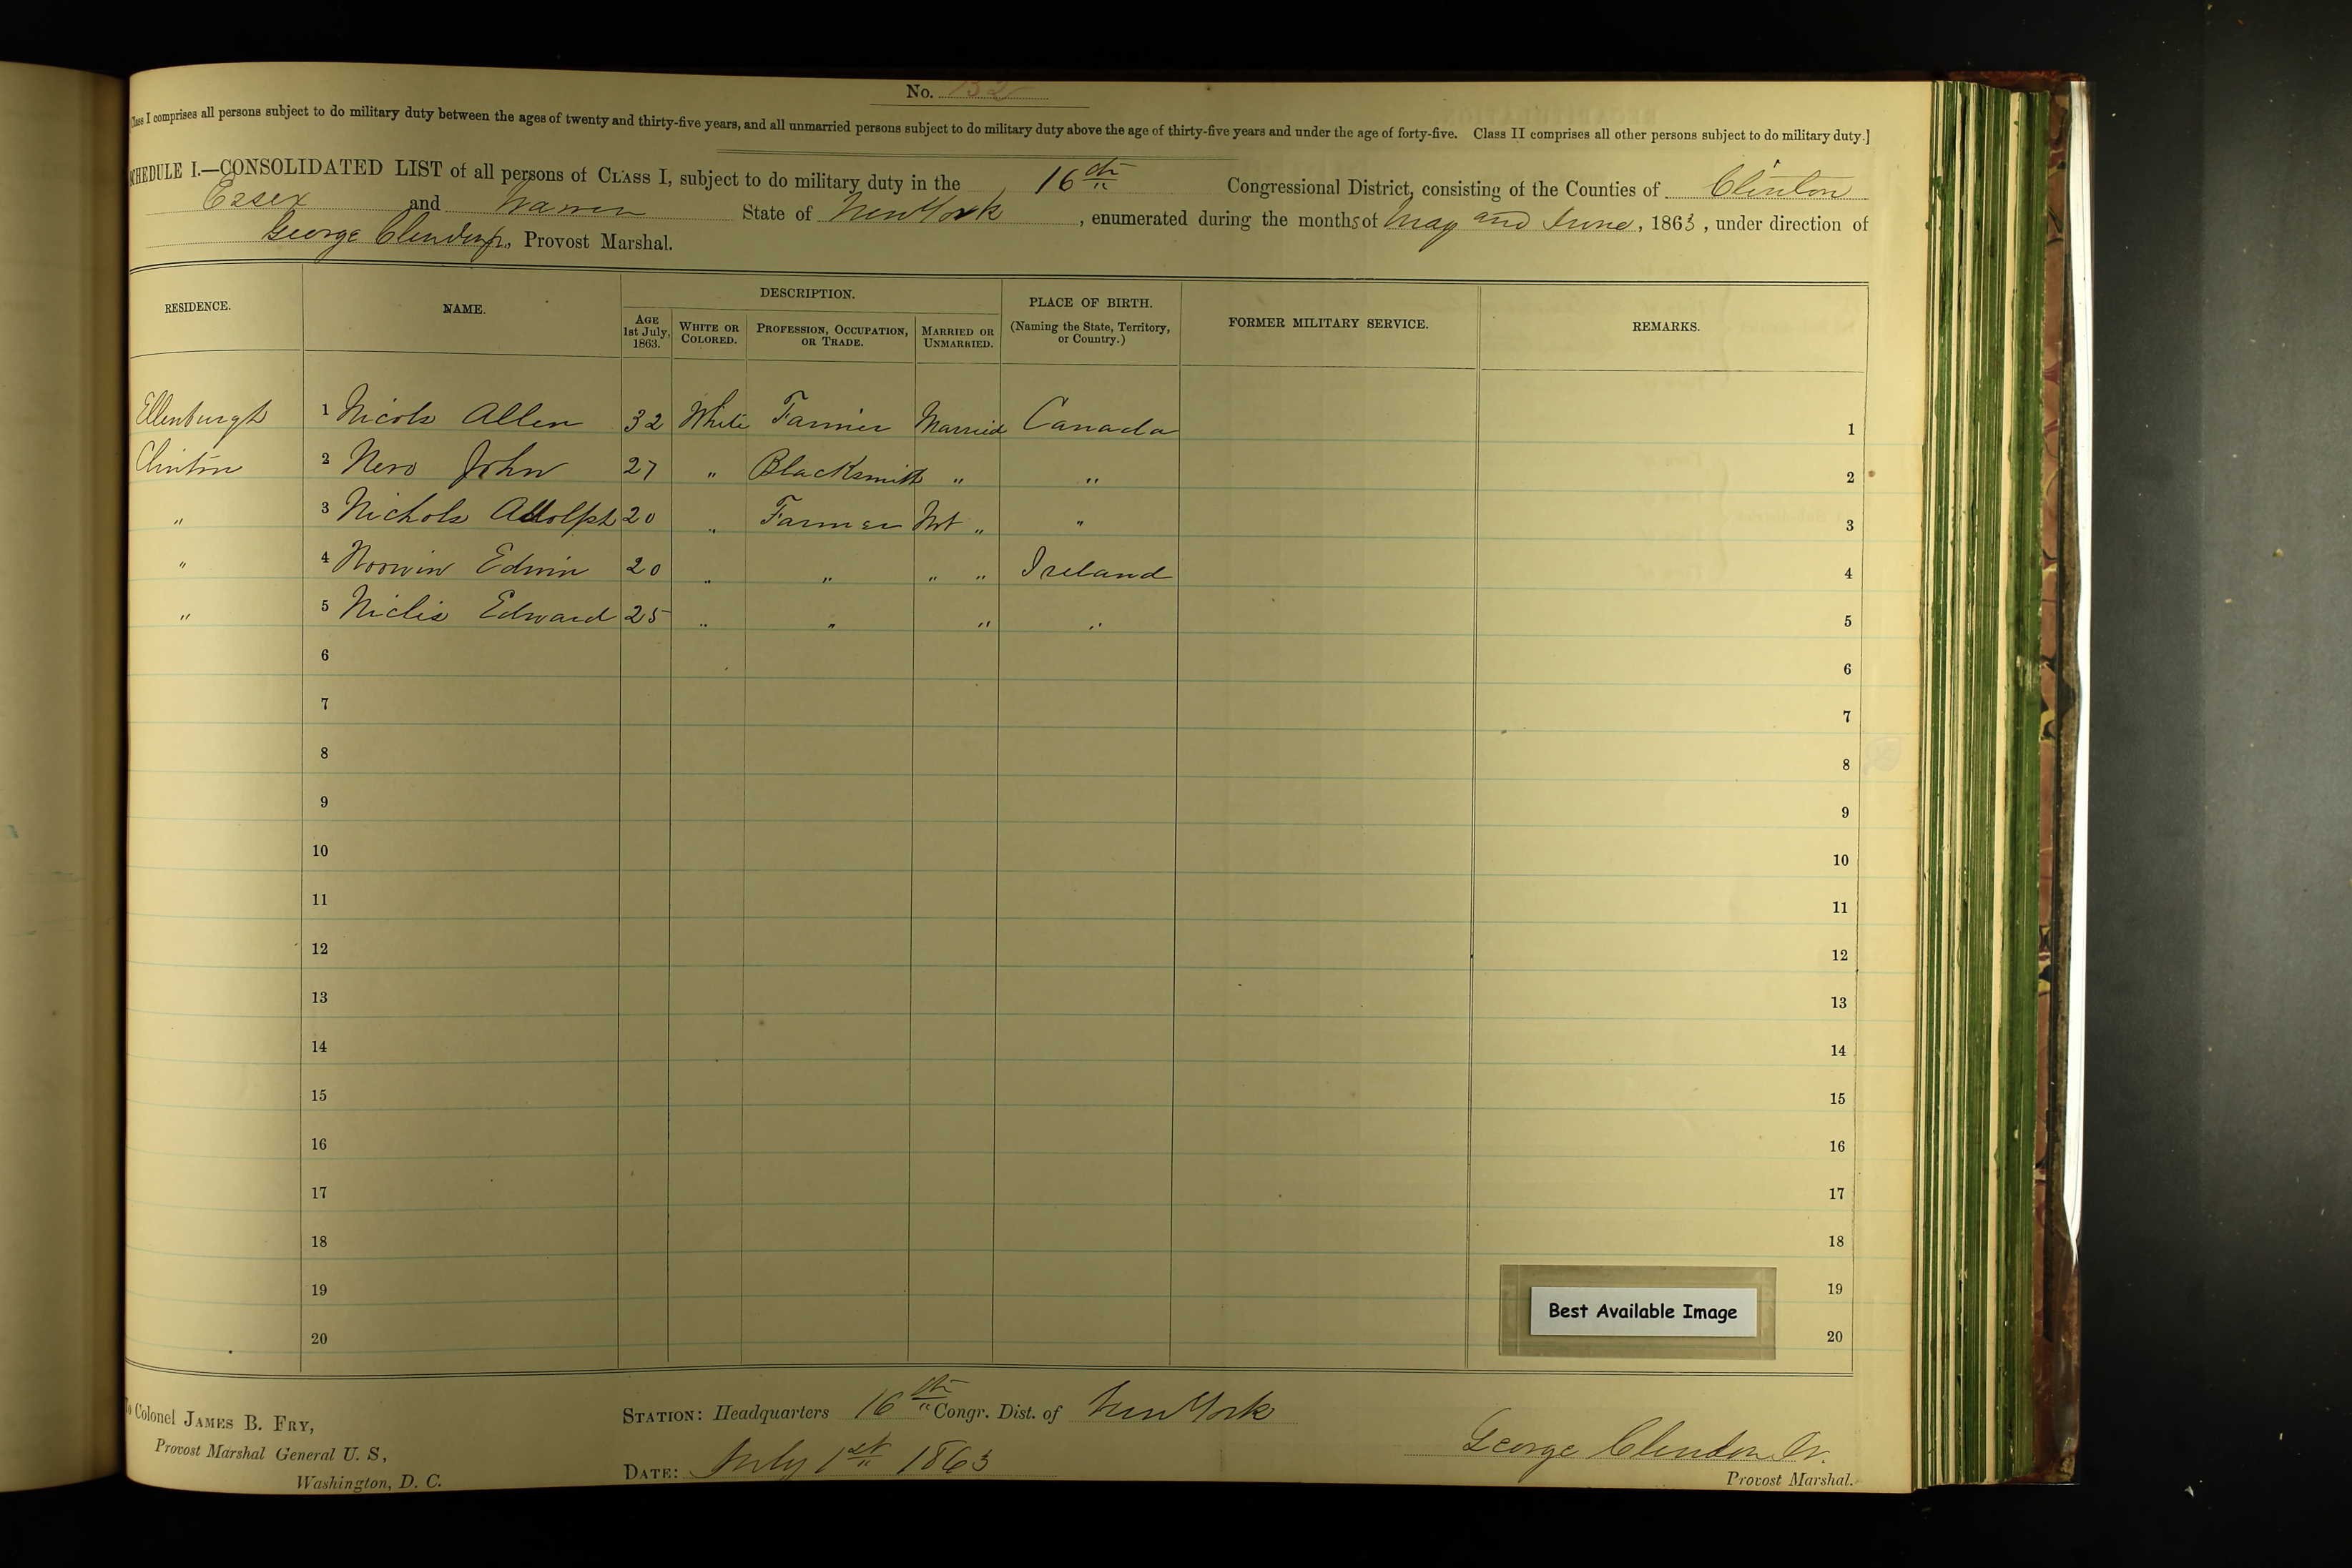 No. 132
Class I comprises all persons subject to do military duty between the ages of twenty and thirty-five years, and all unmarried persons subject to do military duty above the age of thirty-five years and under the age of forty-five. Class II comprises all other persons subject to do military duty.]
SCHEDULE I.—CONSOLIDATED LIST of all persons of CLASS I, subject to do military duty in the 16th Congressional District, consisting of the Counties of Clinton
Essex and Warren State of New York, enumerated during the months of May and June, 1863, under direction of
George Clendon Jr., Provost Marshal.
RESIDENCE. NAME. DESCRIPTION. PLACE OF BIRTH. (Naming the State, Territory, or Country.) FORMER MILITARY SERVICE. REMARKS.
AGE 1st July, 1863. WHITE OR COLORED. PROFESSION, OCCUPATION, OR TRADE. MARRIED OR UNMARRIED.
Ellenburgh 1 Nicols Allen 32 White Farmer Married Canada 1
Clinton 2 Nero John 27 " Blacksmith " " 2
" 3 Nichols Adolph 20 " Farmer Not " " 3
" 4 Noowin Edwin 20 " " " " Ireland 4
" 5 Niclis Edward 25 " " " " 5
6 6
7 7
8 8
9 9
10 10
11 11
12 12
13 13
14 14
15 15
16 16
17 17
18 18
19 19
Best Available Image
20 20
To Colonel JAMES B. FRY,
Provost Marshal General U. S,
Washington, D. C.
STATION: Headquarters 16th Congr. Dist. of New York
DATE: July 1st 1863
George Clendon Jr.
Provost Marshal.